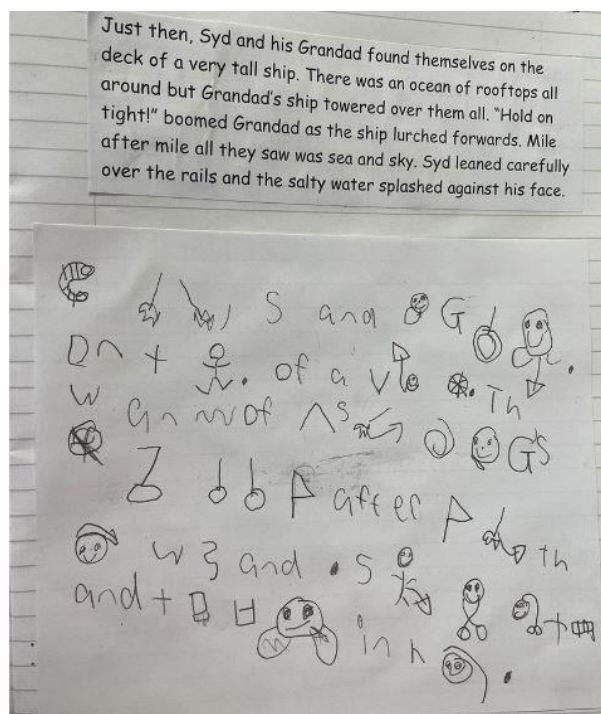 Just then, Syd and his Grandad found themselves on the
deck of a very tall ship. There was an ocean of rooftops all
around but Grandad's ship towered over them all. "Hold on
tight!" boomed Grandad as the ship lurched forwards. Mile
after mile all they saw was sea and sky. Syd leaned carefully
over the rails and the salty water splashed against his face.
S and G
on t . of a v . Th
w an of s G's
P after P th
w and . s
and t in h .